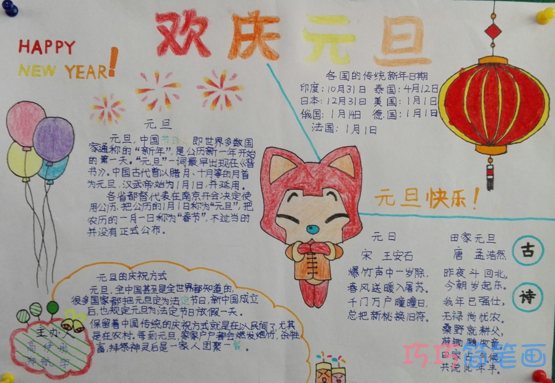 欢庆元旦
HAPPY
NEW YEAR!
各国的传统新年日期
印度:10月31日 泰国:4月12日
日本:12月31日 美国:1月1日
俄国:1月14日 德国:1月1日
法国:1月1日
元旦
元旦,中国节日,即世界多数国
家通称的“新年”,是公历新一年开始
的第一天。“元旦”一词最早出现在《晋
书》。中国古代曾以腊月、十月等的月首
为元旦,汉武帝始为1月1日,并延用。
各省都督代表在南京开会,决定使
用公历,把公历的1月1日称为“元旦”,把
农历的一月一日称为“春节”,不过当时
并没有正式公布。
元旦快乐!
元日
宋 王安石
爆竹声中一岁除,
春风送暖入屠苏。
千门万户曈曈日,
总把新桃换旧符。
田家元旦
唐 孟浩然
昨夜斗回北,
今朝岁起东。
我年已强仕,
无禄尚忧农。
桑野就耕父,
古诗
元旦的庆祝方式
元旦,全中国甚至是全世界都知道的,
很多国家都把元旦定为法定节日,新中国成立
后,也规定元旦为法定节日放假一天。
保留着中国传统的庆祝方式就是在人民间了,尤其
是在农村,每到元旦,家家户户都会燃放爆竹,杀牲
畜,拜祭神灵后是一家人团聚一餐。
主办人
巧巧简笔画